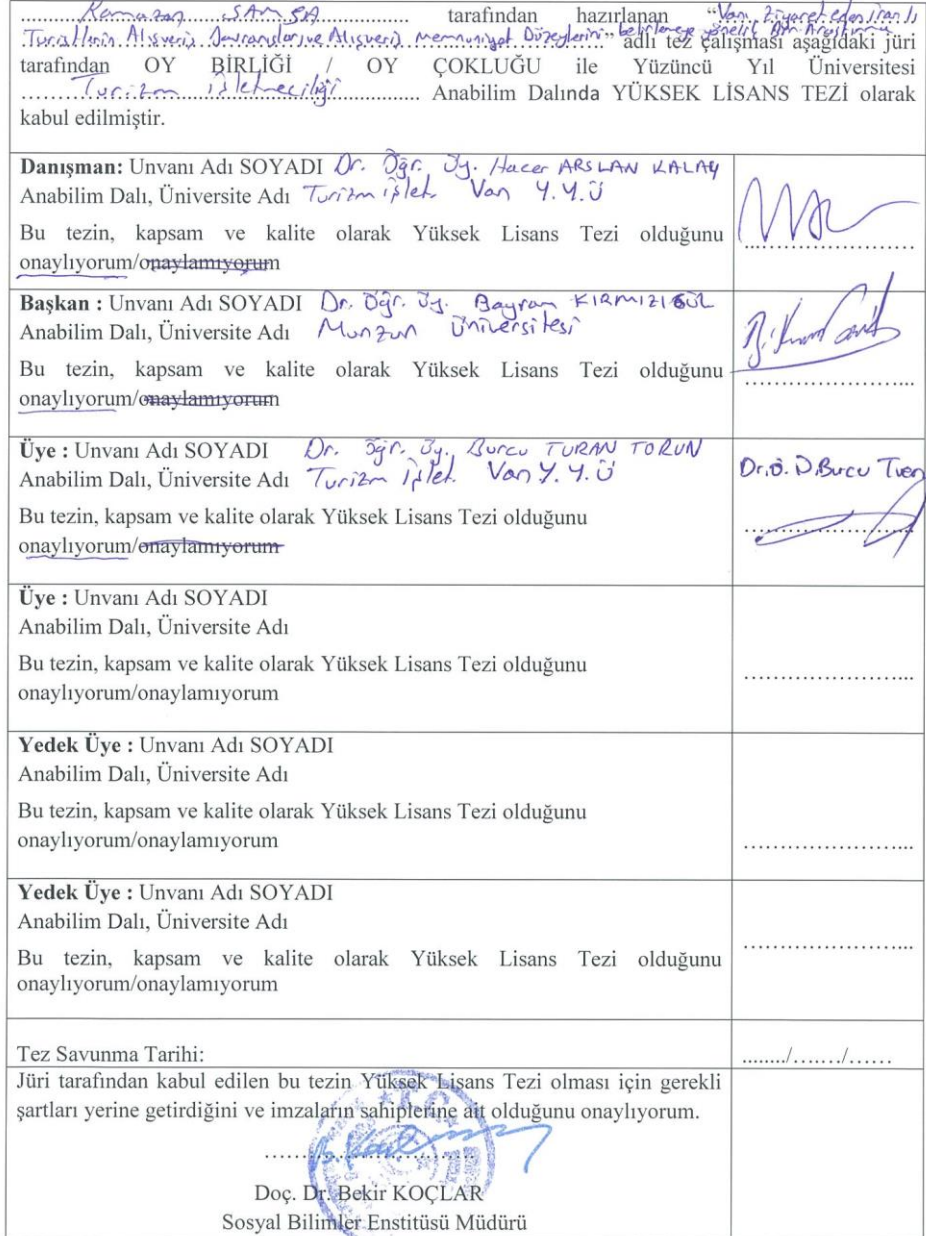 Ramazan SAMSA tarafından hazırlanan “Van'ı Ziyaret eden İranlı
Turistlerin Alışveriş Davranışları ve Alışveriş Memnuniyet Düzeylerini belirlemeye yönelik Bir Araştırma” adlı tez çalışması aşağıdaki jüri
tarafından OY BİRLİĞİ / OY ÇOKLUĞU ile Yüzüncü Yıl Üniversitesi
……Turizm işletmeciliği………… Anabilim Dalında YÜKSEK LİSANS TEZİ olarak
kabul edilmiştir.
Danışman: Unvanı Adı SOYADI Dr. Öğr. Üy. Hacer ARSLAN KALAY
Anabilim Dalı, Üniversite Adı Turizm işlet. Van Y.Y.Ü
Bu tezin, kapsam ve kalite olarak Yüksek Lisans Tezi olduğunu
onaylıyorum/onaylamıyorum
……………………
Başkan : Unvanı Adı SOYADI Dr. Öğr. Üy. Bayram KIRMIZIGÜL
Anabilim Dalı, Üniversite Adı Munzur Üniversitesi
Bu tezin, kapsam ve kalite olarak Yüksek Lisans Tezi olduğunu
onaylıyorum/onaylamıyorum
…………………...
Üye : Unvanı Adı SOYADI Dr. Öğr. Üy. Burcu TURAN TORUN
Anabilim Dalı, Üniversite Adı Turizm işlet. Van Y.Y.Ü
Bu tezin, kapsam ve kalite olarak Yüksek Lisans Tezi olduğunu
onaylıyorum/onaylamıyorum
Dr.Ö. Burcu
…………………...
Üye : Unvanı Adı SOYADI
Anabilim Dalı, Üniversite Adı
Bu tezin, kapsam ve kalite olarak Yüksek Lisans Tezi olduğunu
onaylıyorum/onaylamıyorum
…………………...
Yedek Üye : Unvanı Adı SOYADI
Anabilim Dalı, Üniversite Adı
Bu tezin, kapsam ve kalite olarak Yüksek Lisans Tezi olduğunu
onaylıyorum/onaylamıyorum
…………………...
Yedek Üye : Unvanı Adı SOYADI
Anabilim Dalı, Üniversite Adı
Bu tezin, kapsam ve kalite olarak Yüksek Lisans Tezi olduğunu
onaylıyorum/onaylamıyorum
…………………...
Tez Savunma Tarihi:
......../……./……
Jüri tarafından kabul edilen bu tezin Yüksek Lisans Tezi olması için gerekli
şartları yerine getirdiğini ve imzaların sahiplerine ait olduğunu onaylıyorum.
……………………….
Doç. Dr. Bekir KOÇLAR
Sosyal Bilimler Enstitüsü Müdürü